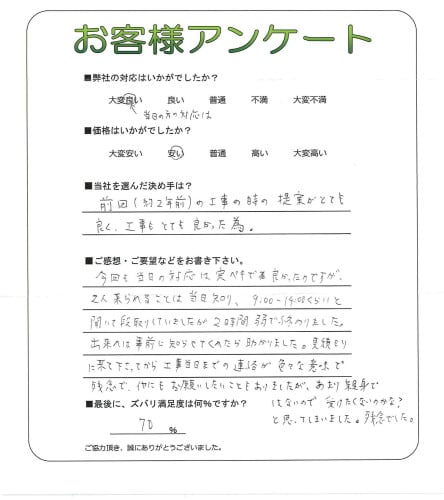 お客様アンケート
■弊社の対応はいかがでしたか?
大変良い 良い 普通 不満 大変不満
当日の方の対応は
■価格はいかがでしたか?
大変安い 安い 普通 高い 大変高い
■当社を選んだ決め手は?
前回(約2年前)の工事の時の提案がとても
良く、工事もとても良かった為。
■ご感想・ご要望などをお書き下さい。
今回も当日の対応は 良かったのですが、
2人来られることは当日知り、9:00~14:00くらいと
聞いて段取りしていましたが2時間弱で終わりました。
出来れば事前に知らせてくれたら助かりました。見積もり
に来て下さってから工事当日までの連絡が色々な意味で
残念で、他にもお願いしたいこともありましたが、あまり 身で
はないので 受けたくないのかな?
と思ってしまいました。残念でした。
■最後に、ズバリ満足度は何%ですか?
70 %
ご協力頂き、誠にありがとうございました。